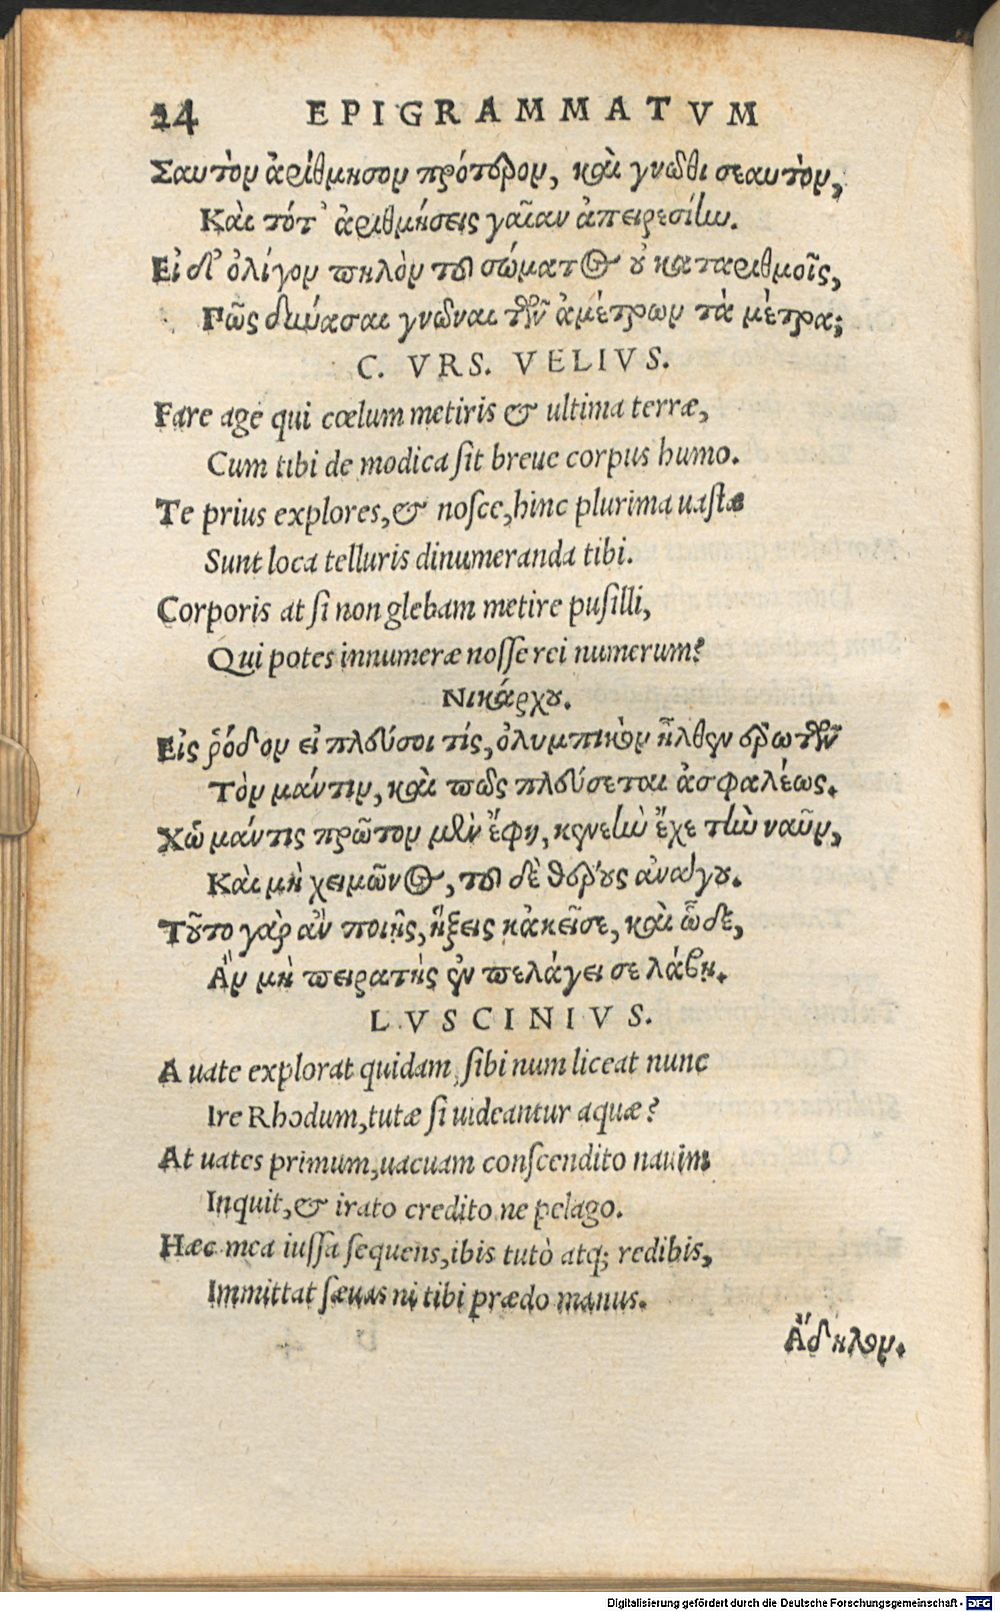 24 EPIGRAMMATVM
Σαυτὸν ἀρίθμησον πρότερον, καὶ γνῶθι σεαυτὸν,
Καὶ τότ' ἀριθμήσεις γαῖαν ἀπειρεσίην.
Εἰ δ' ὀλίγον πηλὸν τοῦ σώματος οὐ καταριθμοῖς,
Πῶς δύνασαι γνῶναι τῶν ἀμέτρων τὰ μέτρα;
C. VRS. VELIVS.
Fare age qui cœlum metiris & ultima terræ,
Cum tibi de modica ſit breue corpus humo.
Te prius explores, & noſce, hinc plurima uaſtæ
Sunt loca telluris dinumeranda tibi.
Corporis at ſi non glebam metire puſilli,
Qui potes innumeræ noſſe rei numerum?
Νικάρχου.
Εἰς ῥόδον εἰ πλεύσοι τίς, ὀλυμπικὸν ἦλθεν ἐρωτῶν
Τὸν μάντιν, καὶ πῶς πλεύσεται ἀσφαλέως.
Χὠ μάντις πρῶτον μὲν ἔφη, κενεὴν ἔχε τὴν ναῦν,
Καὶ μὴ χειμῶνος, τοῦ δὲ θέρους ἀνάγου.
Τοῦτο γὰρ ἂν ποιῇς, ἥξεις κἀκεῖσε, καὶ ὧδε,
Ἂν μὴ πειρατὴς ἐν πελάγει σε λάβη.
LVSCINIVS.
A uate explorat quidam, ſibi num liceat nunc
Ire Rhodum, tutæ ſi uideantur aquæ?
At uates primum, uacuam conſcendito nauim
Inquit, & irato credito ne pelago.
Hæc mea iuſſa ſequens, ibis tutò atq; redibis,
Immittat ſæuas ni tibi prædo manus.
Ἄδηλον.
Digitalisierung gefördert durch die Deutsche Forschungsgemeinschaft - DFG